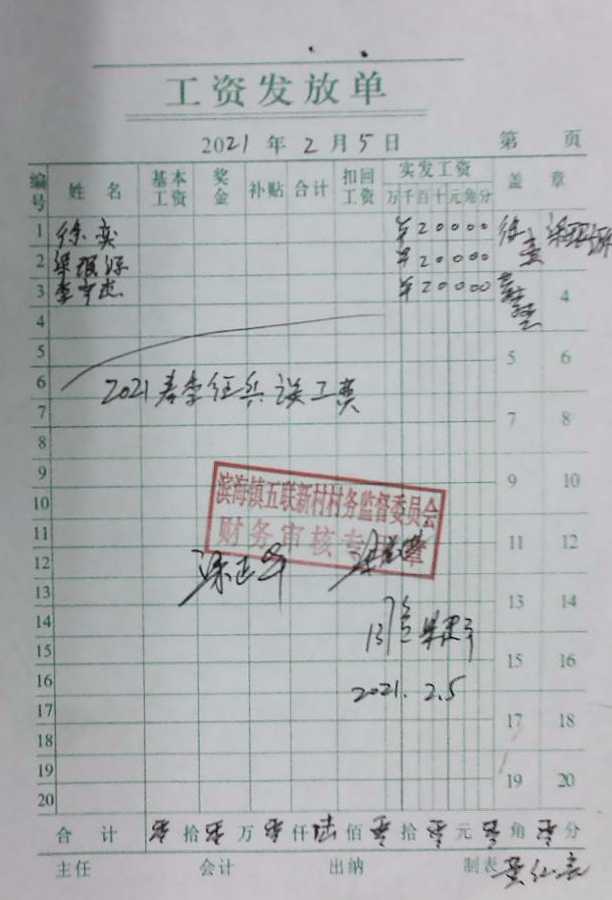 工资发放单
2021年2月5日 第 页
编号 姓名 基本工资 奖金 补贴 合计 扣回工资 实发工资 万千百十元角分 盖章
1 徐奕 ¥20000 徐奕
2 ¥20000
3 ¥20000 4
4
5 5 6
6 2021春季征兵误工费
7 7 8
8
9 9 10
10 滨海镇五联新村村务监督委员会
11 财务审核专用章 11 12
12
13 13 14
14 同意
15 15 16
16 2021.2.5
17 17 18
18
19 19 20
20
合计 零拾零万零仟陆佰零拾零元零角零分
主任 会计 出纳 制表